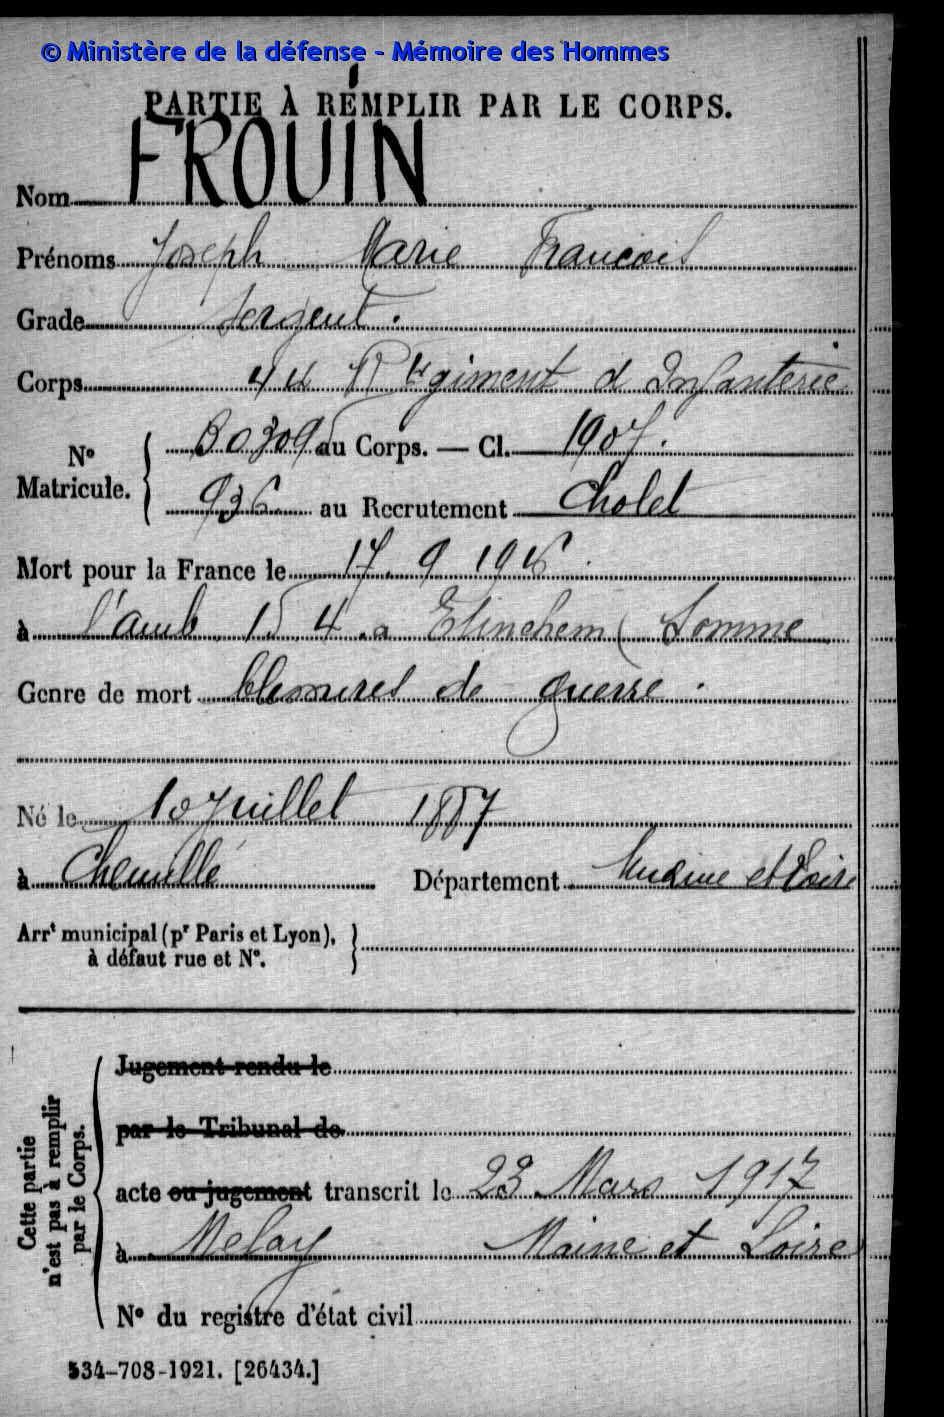 © Ministère de la défense - Mémoire des Hommes
PARTIE À REMPLIR PAR LE CORPS.
Nom FROUIN
Prénoms Joseph Marie François
Grade Sergent.
Corps 44 Régiment d Infanterie
N° Matricule. { 30309 au Corps. — Cl. 1907.
936 au Recrutement Cholet
Mort pour la France le 17. 9 1916.
à l'amb. 15 4. a Etinehem (Somme
Genre de mort blessures de guerre.
Né le 10 Juillet 1887
à Chemillé Département Maine et Loire
Arrt municipal (pr Paris et Lyon), }
à défaut rue et N°.
Cette partie
n'est pas à remplir
par le Corps.
Jugement rendu le
par le Tribunal de
acte ou jugement transcrit le 23 Mars 1917
à Melay Maine et Loire
N° du registre d'état civil
534-708-1921. [26434.]